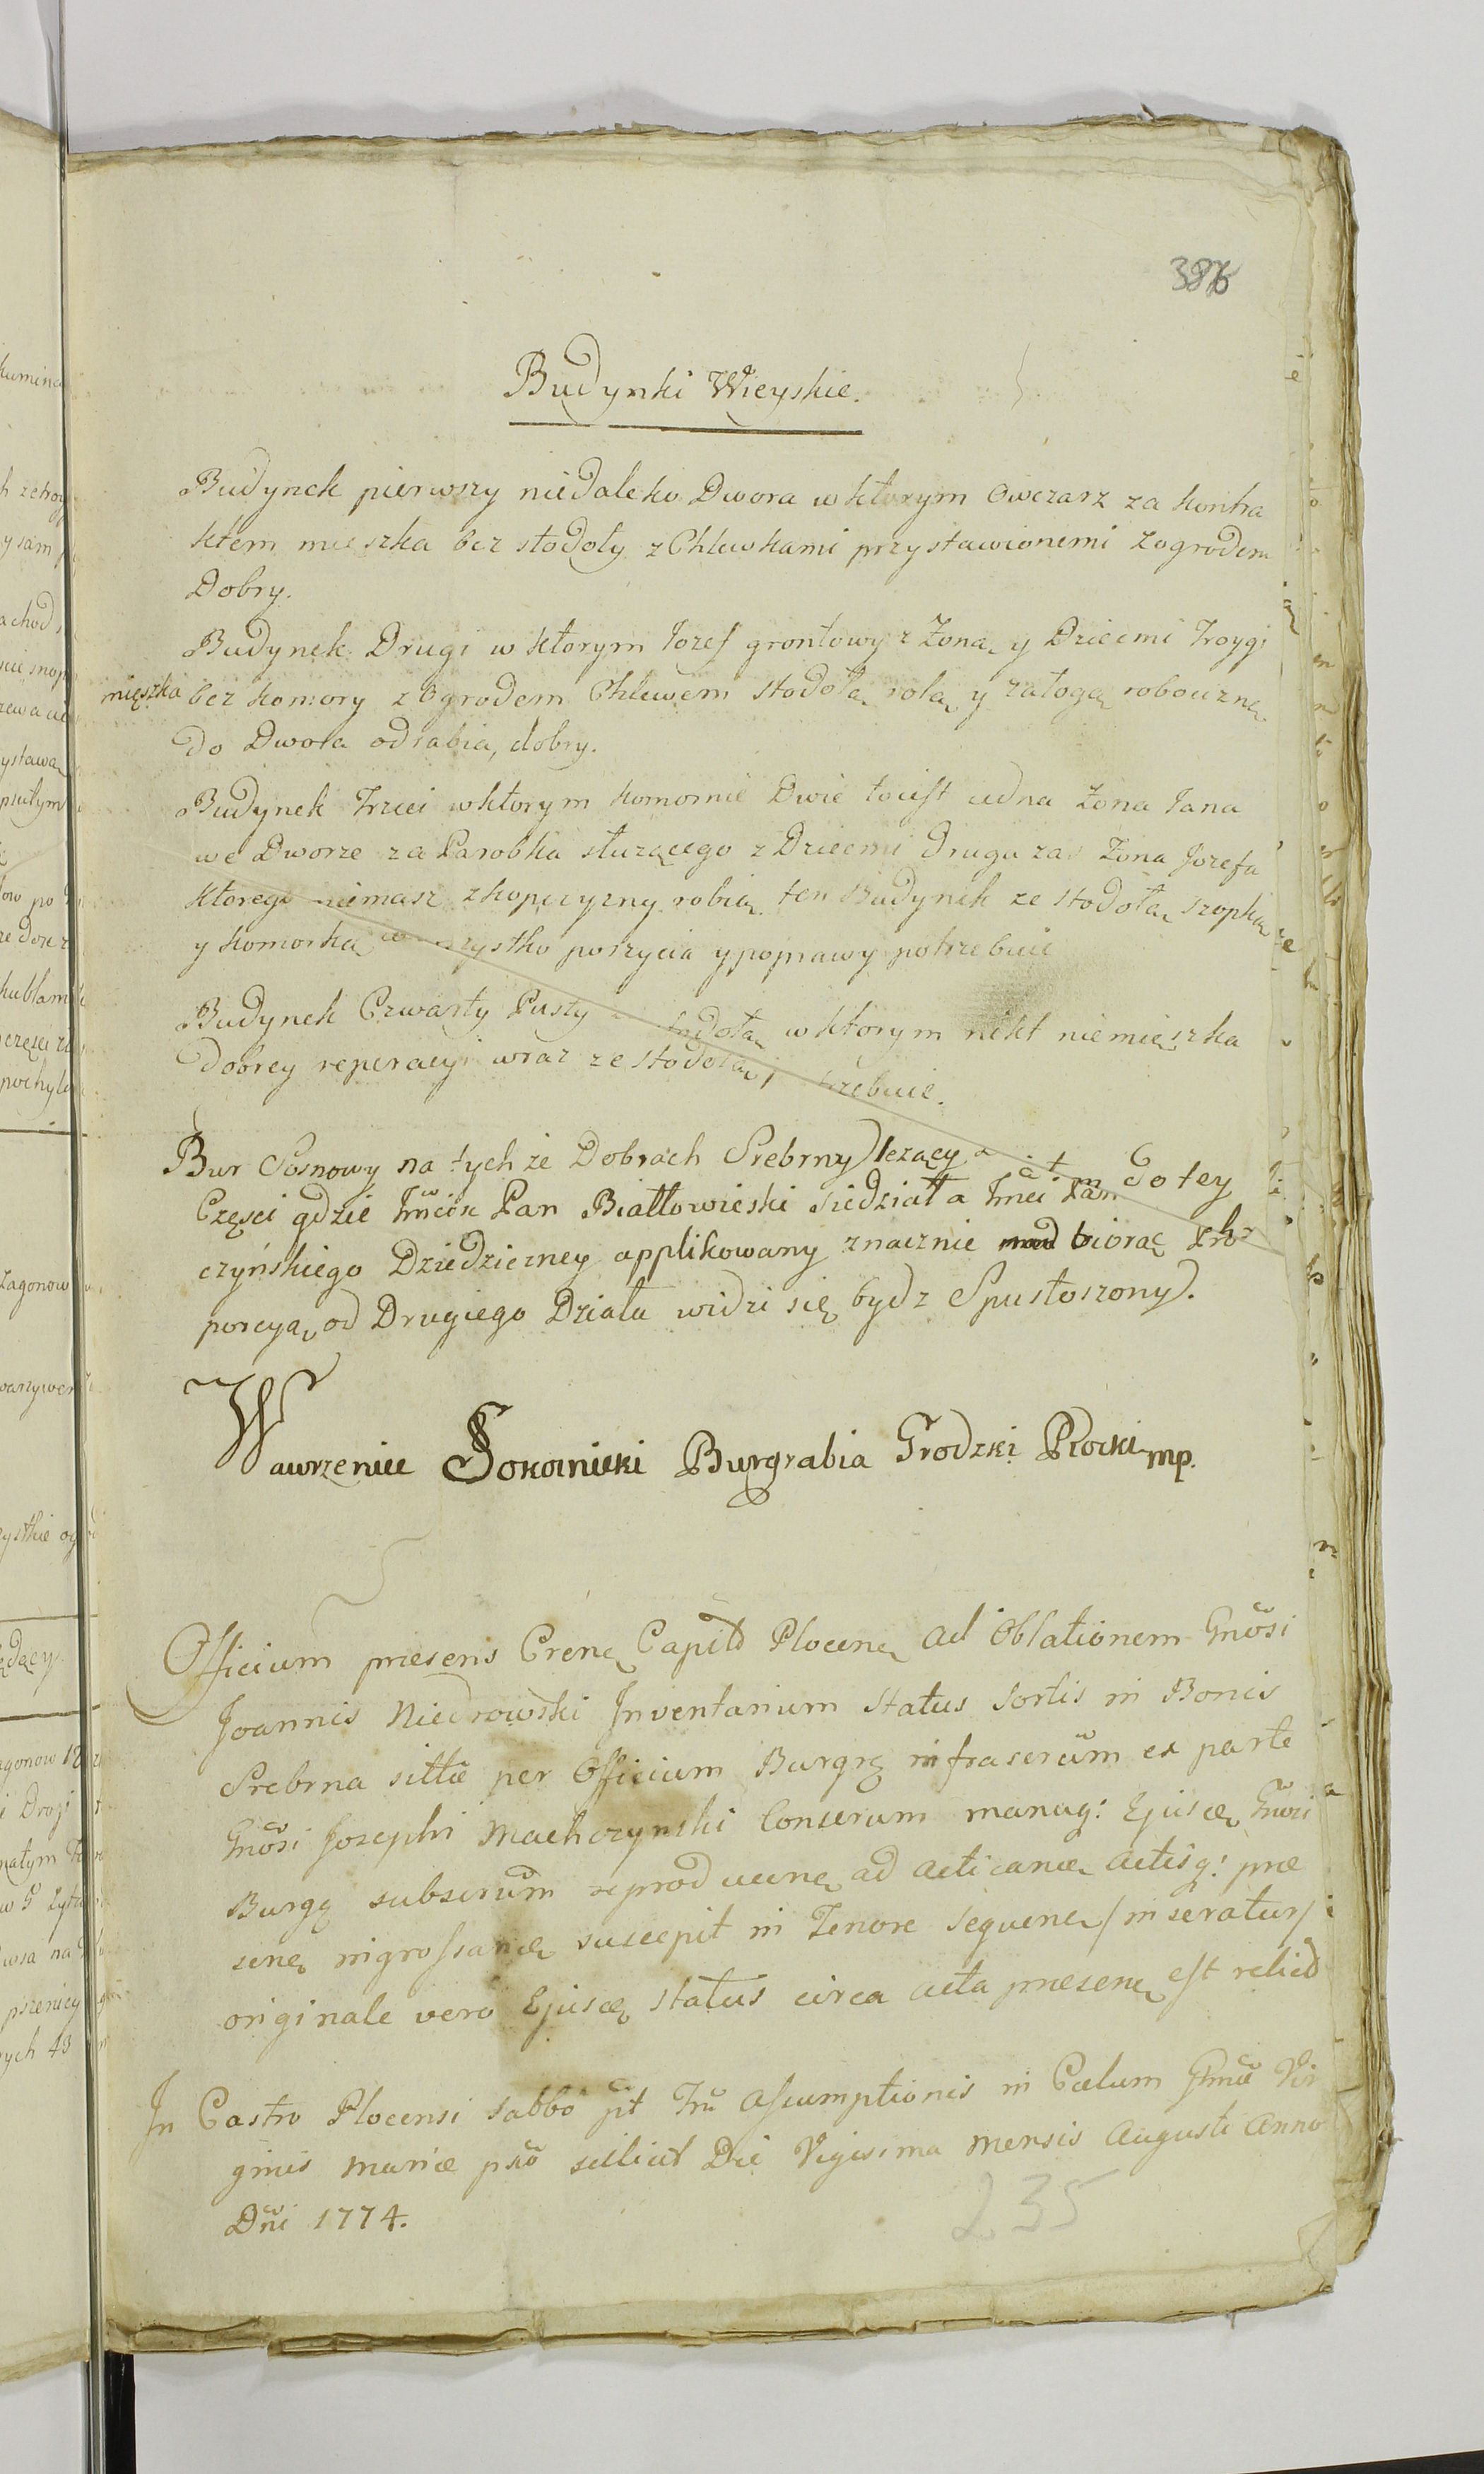 386
Budynki Wieyskie.
Budynek pierwszy niedaleko Dwora w ktorym Owczarz za kontra
ktem mieszka bez stodoły z Chlewkami przystawionemi z ogrodem
Dobry.
Budynek Drugi w ktorym Jozef grontowy z Zoną y Dziecmi Troygi
mięszka bez komory z Ogrodem Chlewem stodołą rolą y załogą roboczną
do Dwora odrabia, dobry.
Budynek Trzeci w ktorym komornie Dwie toiest iedna Zona Jana
we Dworze za Parobka słuzącego z Dziecmi druga zas Zona Jozefa
ktorego niemasz zkopczyzny robią ten Budynek ze stodołą szopką
y komorką poszycia y poprawy potrzebuie
Budynek Czwarty Pusty w ktorym nikt niemięszka
Dobrey reperacyi wraz ze stodołą
Bur Sosnowy na tych ze Dobrach Srebrny lezący a do tey
Częsci gdzie Jmćisc Pan Białłowieski siedział a Jmci Pan
czyńskiego Dziedziczney applikowany znacznie nad biorąc Pro
porcyą od Drugiego Działu widzi się bydz Spustoszony.
Wawrzeniec Sokolnicki Burgrabia Grodzki Płocki mp.
Officium præsens Crenę Capitd Plocenę ad Oblationem Gnôsi
Joannis Niedrowski Inventarium Status Sortis in Bonis
Srebrna sittæ per Officium Burgrę infrascrûm ex parte
Gnôsi Josephi Machczynski Conserum manuq: Ejuscę Gnôsi
Burgę subscrûm reproducenę ad acticancę actisq: præ
senę ingrossancę suscepit in Tenore sequenę /inseratur/
originale vero Ejuscę status circa acta præsenę est relictd
In Castro Plocensi Sabbô pît Frû Assumptionis in Cælum Gmæ Vir
ginis Mariæ pxô scilicet Die Vigesima Mensis Augusti Anno
Dñi 1774.
235